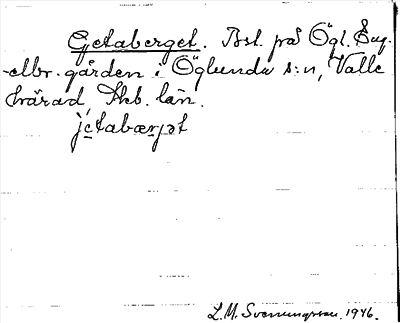 Getaberget. Bst. på Ögl. Aug.
-elbr. gården i Öglunda s:n, Valle
härad, Skb. län.
L.M. Svenungsson. 1946.